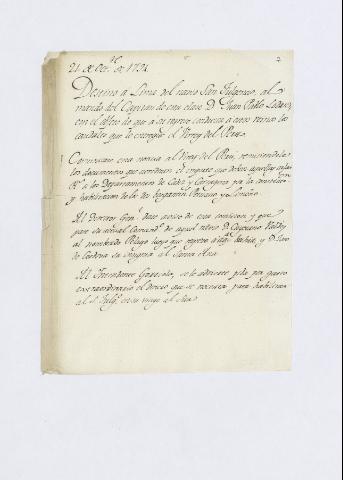 21 de Oct.re de 1791.
2
Destino a Lima del navio San Fulgencio, al
mando del Capitan de esta clase D. Juan Pablo Lodares
con el objeto de que a su regreso conduzca a estos reinos los
caudales que le entregue el Virrey del Peru.
esta noticia al Virrey del Peru, remitiendole
los documentos que acreditan el importe que deben aquellas cajas
R.s a los Departamentos de Cadiz y Cartagena por la
y habilitacion de los dos bergantines Peruano y Limeño
Al Director Gen.l dase aviso de esta comision y que
para su actual Comand.te de aquel navio D. Cayetano Valdes
al nombrado Pelayo luego que regrese
de Cordova su compañia al Santa Ana.
Al Intendente se le advierte pida por gasto
extraordinario el dinero que se necesita para habilitar
al S. Fulg.o en su viaje al Sur.